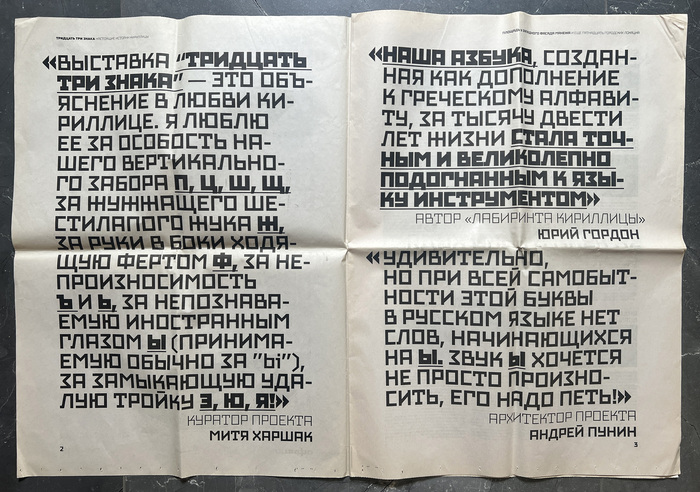 ТРИДЦАТЬ ТРИ ЗНАКА
«ВЫСТАВКА "ТРИДЦАТЬ
ТРИ ЗНАКА" — ЭТО ОБЪ-
ЯСНЕНИЕ В ЛЮБВИ КИ-
РИЛЛИЦЕ. Я ЛЮБЛЮ
ЕЕ ЗА ОСОБОСТЬ НА-
ШЕГО ВЕРТИКАЛЬНО-
ГО ЗАБОРА П, Ц, Ш, Щ,
ЗА ЖУЖЖАЩЕГО ШЕ-
СТИЛАПОГО ЖУКА Ж,
ЗА РУКИ В БОКИ ХОДЯ-
ЩУЮ ФЕРТОМ Ф, ЗА НЕ-
ПРОИЗНОСИМОСТЬ
Ъ И Ь, ЗА НЕПОЗНАВА-
ЕМУЮ ИНОСТРАННЫМ
ГЛАЗОМ Ы (ПРИНИМА-
ЕМУЮ ОБЫЧНО ЗА "bi"),
ЗА ЗАМЫКАЮЩУЮ УДА-
ЛУЮ ТРОЙКУ Э, Ю, Я!»
КУРАТОР ПРОЕКТА
МИТЯ ХАРШАК
2
«НАША АЗБУКА, СОЗДАН-
НАЯ КАК ДОПОЛНЕНИЕ
К ГРЕЧЕСКОМУ АЛФАВИ-
ТУ, ЗА ТЫСЯЧУ ДВЕСТИ
ЛЕТ ЖИЗНИ СТАЛА ТОЧ-
НЫМ И ВЕЛИКОЛЕПНО
ПОДОГНАННЫМ К ЯЗЫ-
КУ ИНСТРУМЕНТОМ»
АВТОР «ЛАБИРИНТА КИРИЛЛИЦЫ»
ЮРИЙ ГОРДОН
«УДИВИТЕЛЬНО,
НО ПРИ ВСЕЙ САМОБЫТ-
НОСТИ ЭТОЙ БУКВЫ
В РУССКОМ ЯЗЫКЕ НЕТ
СЛОВ, НАЧИНАЮЩИХСЯ
НА Ы. ЗВУК Ы ХОЧЕТСЯ
НЕ ПРОСТО ПРОИЗНО-
СИТЬ, ЕГО НАДО ПЕТЬ!»
АРХИТЕКТОР ПРОЕКТА
АНДРЕЙ ПУНИН
3